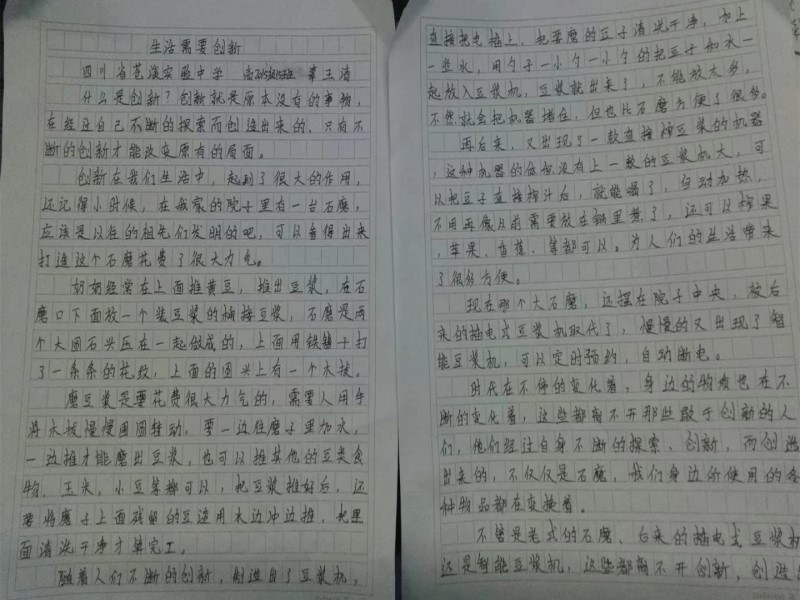 生活需要创新
四川省苍溪实验中学 王清
什么是创新?创新就是原本没有的事物,
在经过自己不断的探索而创造出来的,只有不
断的创新才能改变原有的局面。
创新在我们生活中,起到了很大的作用,
还记得小时候,在我家的院子里有一台石磨,
应该是以往的祖先们发明的吧,可以看得出来
打造这个石磨花费了很大力气。
奶奶经常在上面推黄豆,推出豆浆,在石
磨口下面放一个装豆浆的桶接豆浆,石磨是两
个大圆石头压在一起做成的,上面用铁打
了一条条的花纹,上面的圆头上有一个木
磨豆浆是要花费很大力气的,需要人用手
将木慢慢围圆转动,要一边往磨子里加水,
一边推才能磨出豆浆,也可以推其他的豆类食
物,玉米,小豆等都可以,把豆浆推好后,还
要将磨子上面残留的豆渣用水边冲边推,把里
面清洗干净才算完工。
随着人们不断的创新,制造出了豆浆机,
直接把电插上,把要磨的豆子清洗干净,加上
一些水,用勺子一小勺一小勺的把豆子和水一
起放入豆浆机,豆浆就出来了,不能放太多,
不然就会把机器堵住,但也比石磨方便了很多。
再后来,又出现了一款直接榨豆浆的机器
,这种机器的体积没有上一款的豆浆机大,可
以把豆子直接榨汁后,就能喝了,自动加热,
不用再像从前需要放在锅里煮了,还可以榨果
,苹果、香蕉、等都可以。为人们的生活带来
了很多方便。
现在那个大石磨,还摆在院子中央,被后
来的插电式豆浆机取代了,慢慢的又出现了智
能豆浆机,可以定时预约,自动断电。
时代在不停的变化着,身边的物质也在不
断的变化着,这些都离不开那些敢于创新的人
们,他们经过自身不断的探索、创新,而创造
出来的,不仅仅是石磨,我们身边所使用的各
种物品都在变换着。
不管是老式的石磨、后来的插电式豆浆机
还是智能豆浆机,这些都离不开创新,创造